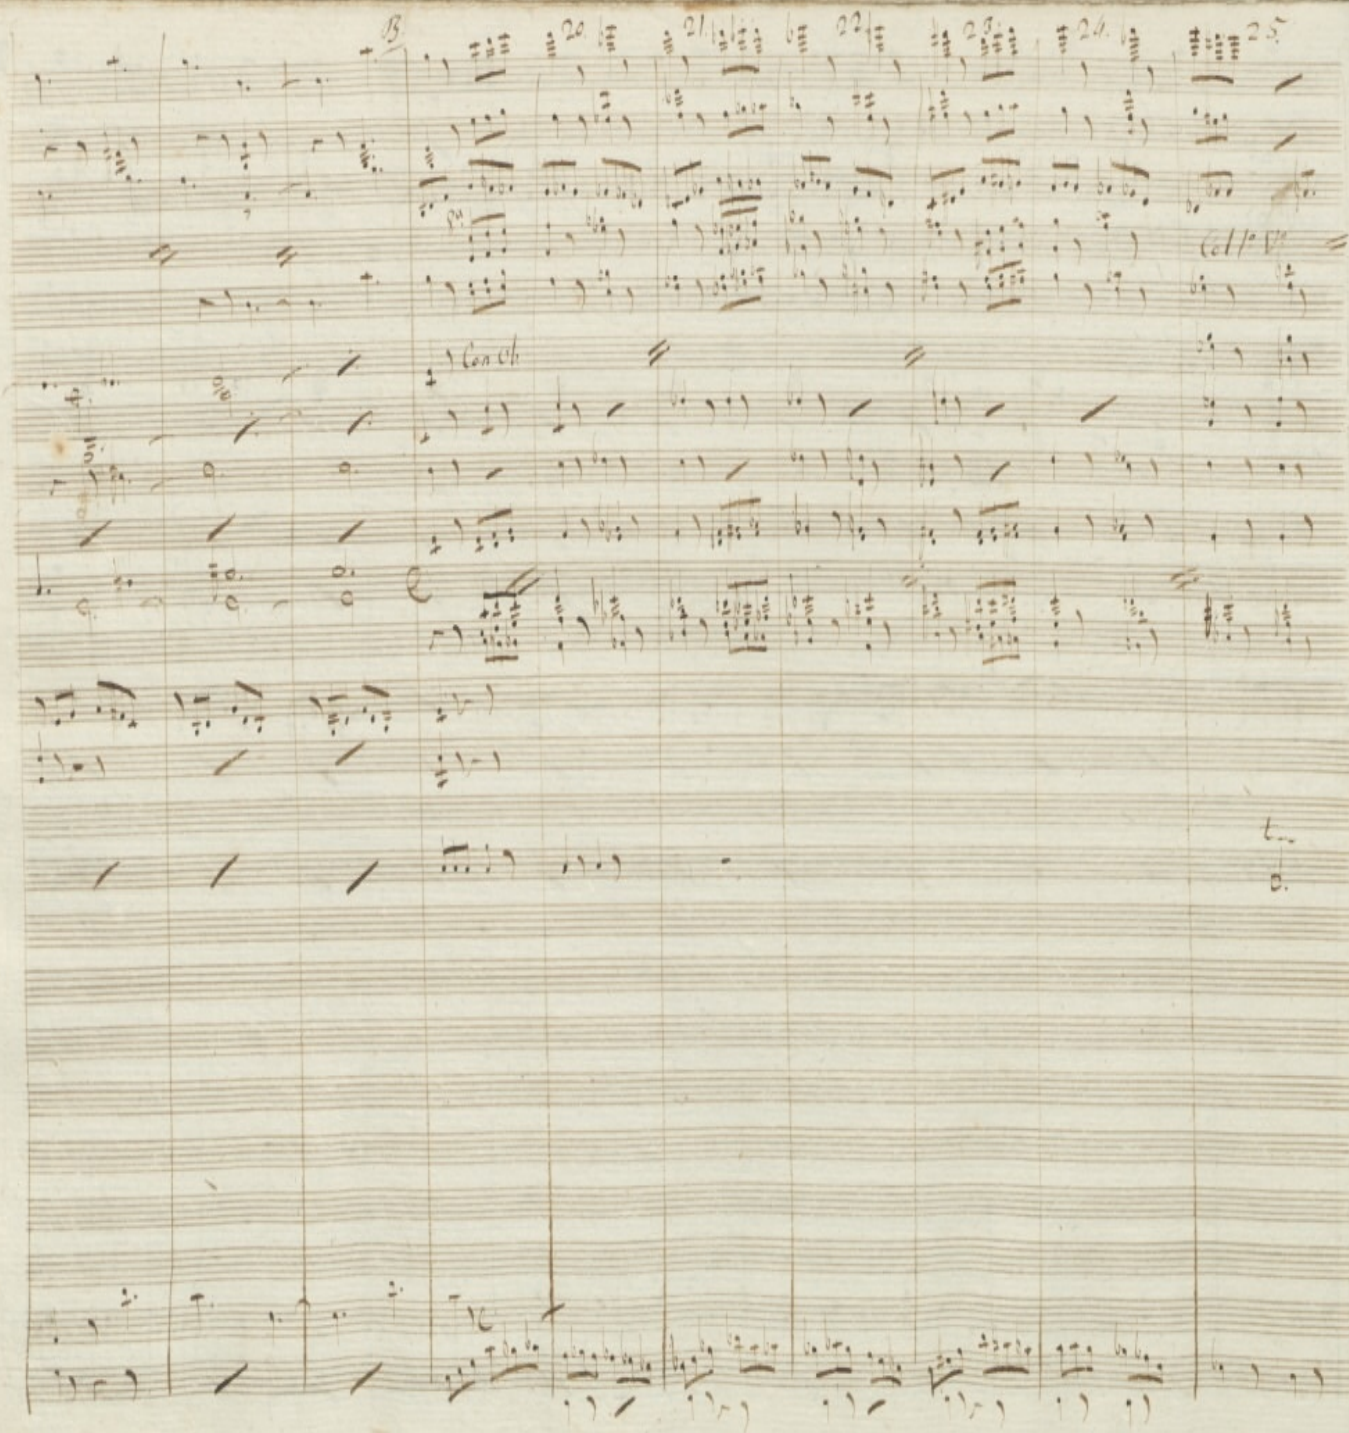 B. 20. 21. 22. 23. 24. 25.
8va
Col 1º Vº
Con Ob
t